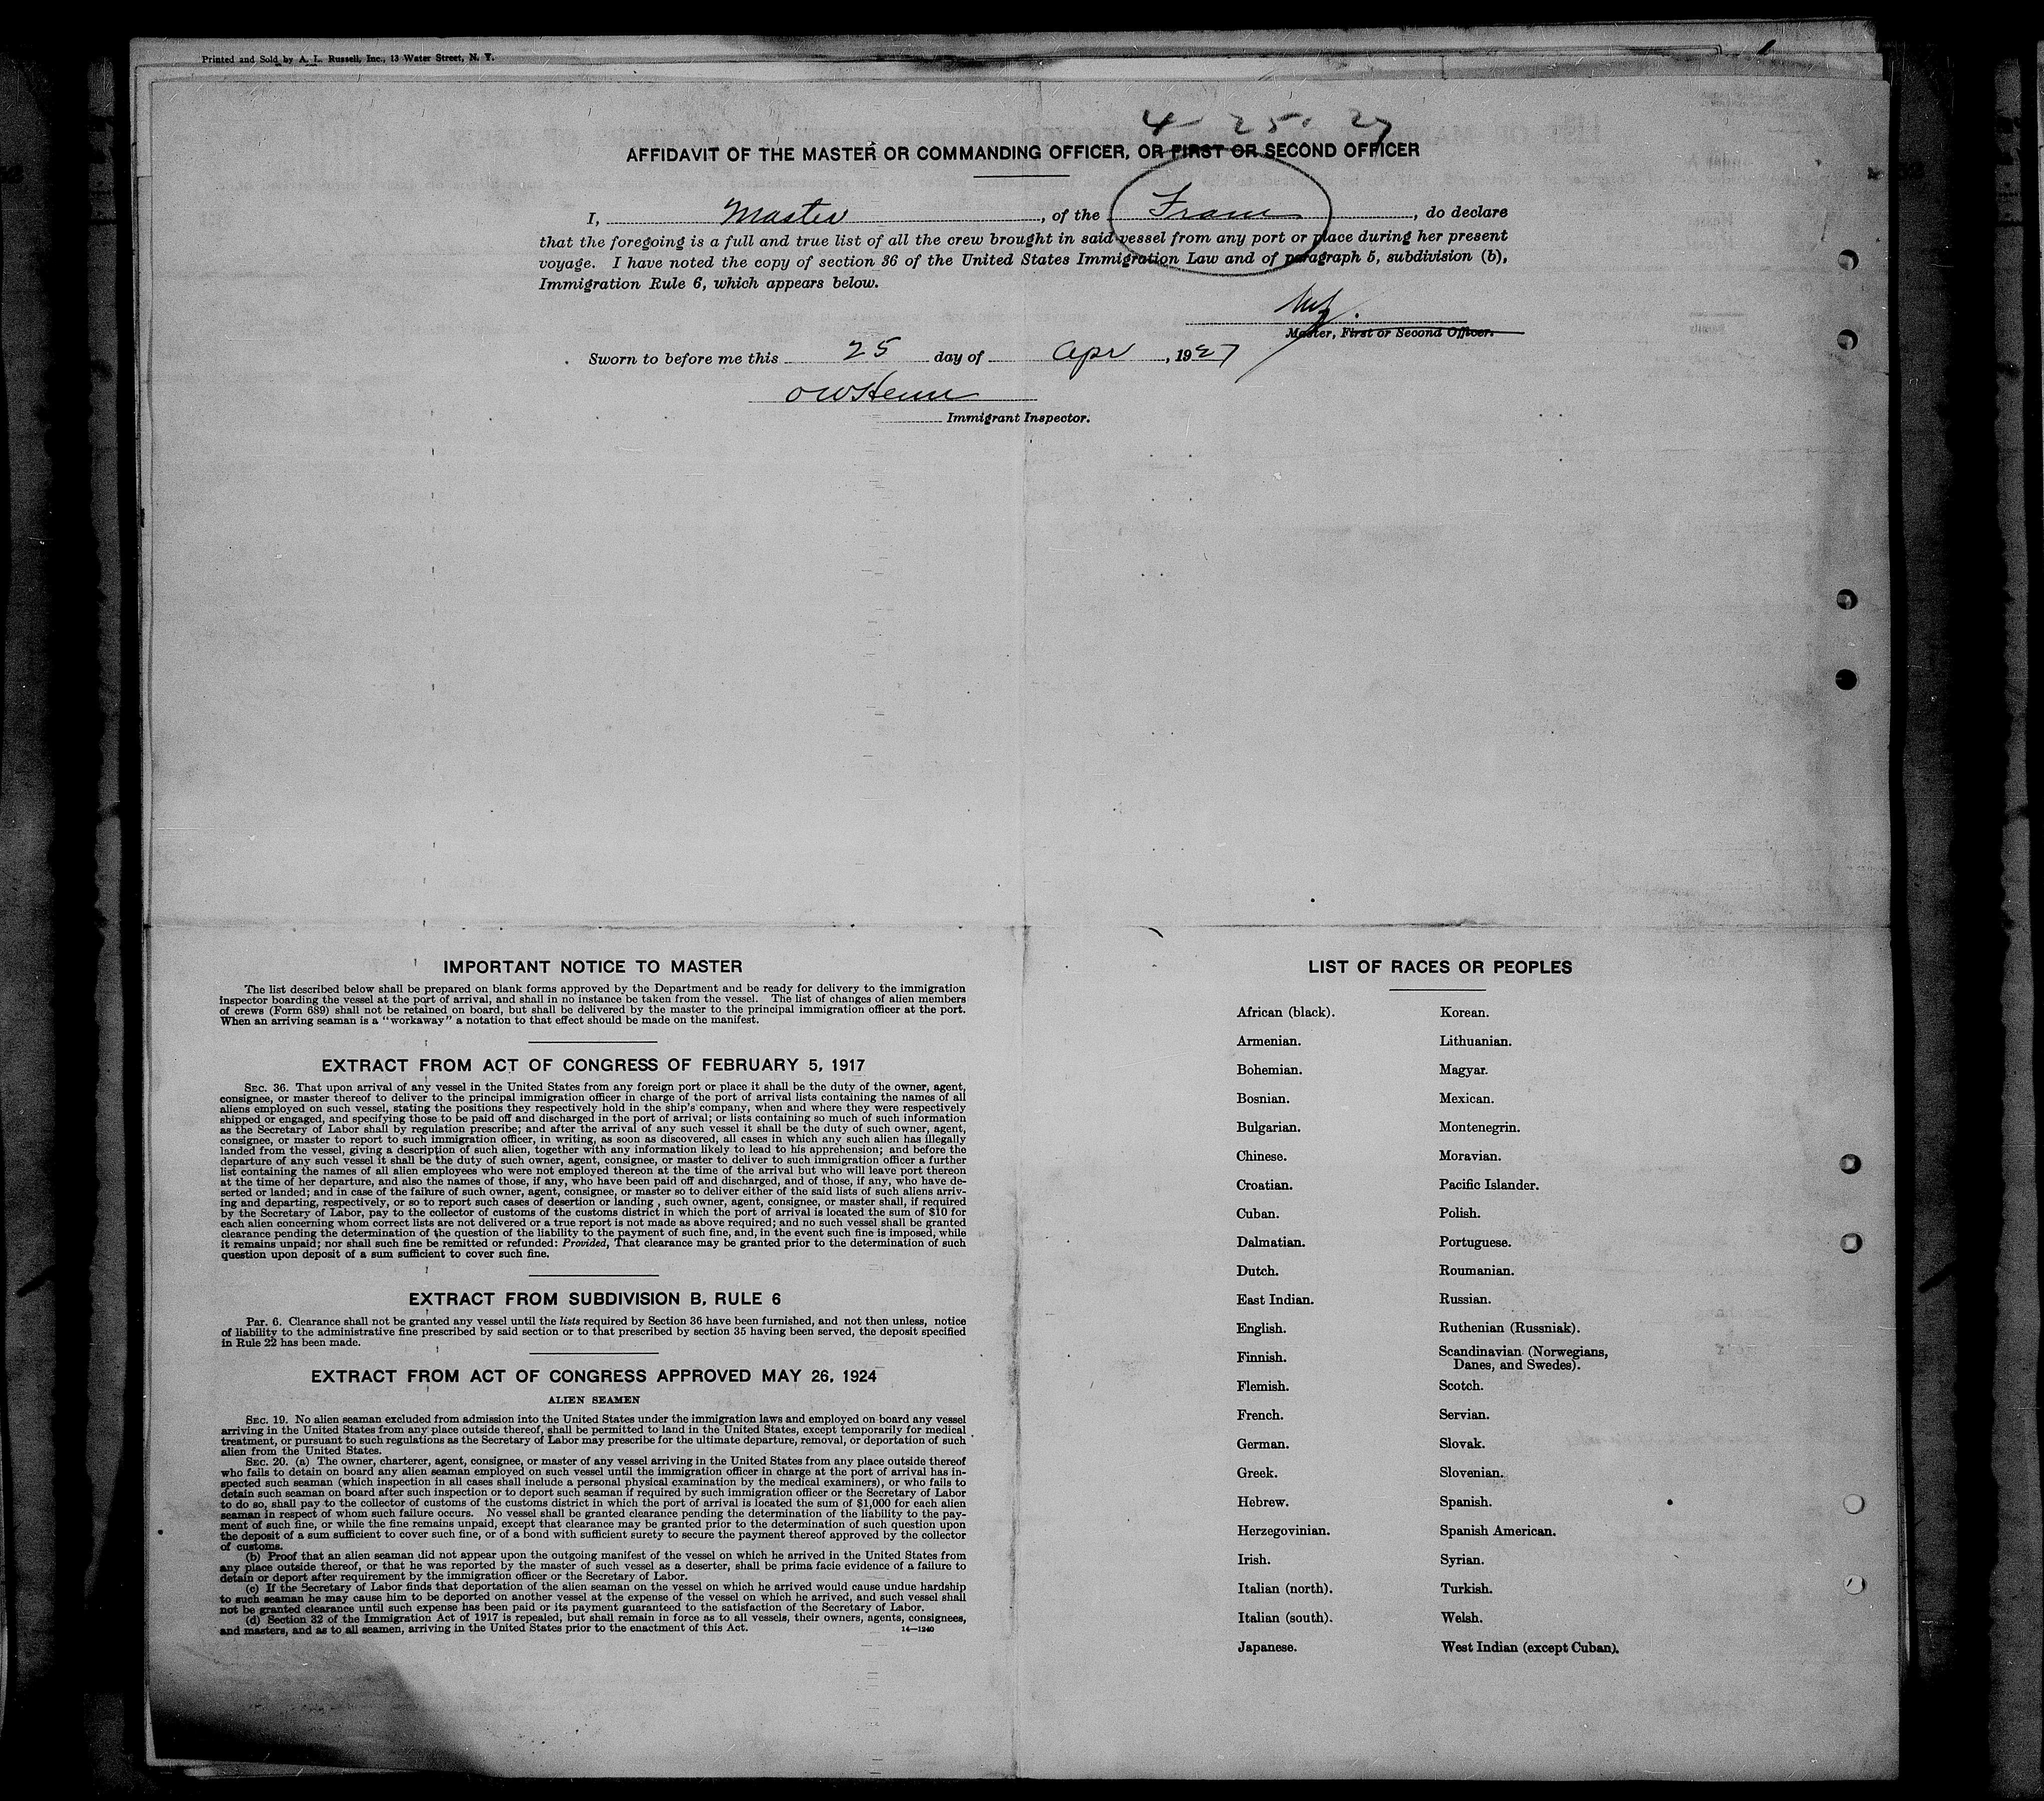 Printed and Sold by A. L. Russell, Inc., 13 Water Street, N. Y.
4 - 25 - 27
AFFIDAVIT OF THE MASTER OR COMMANDING OFFICER, OR FIRST OR SECOND OFFICER
I, Master, of the Fram, do declare
that the foregoing is a full and true list of all the crew brought in said vessel from any port or place during her present
voyage. I have noted the copy of section 36 of the United States Immigration Law and of paragraph 5, subdivision (b),
Immigration Rule 6, which appears below.
Master, First or Second Officer.
Sworn to before me this 25 day of Apr, 1927
Immigrant Inspector.
IMPORTANT NOTICE TO MASTER
The list described below shall be prepared on blank forms approved by the Department and be ready for delivery to the immigration
inspector boarding the vessel at the port of arrival, and shall in no instance be taken from the vessel. The list of changes of alien members
of crews (Form 689) shall not be retained on board, but shall be delivered by the master to the principal immigration officer at the port.
When an arriving seaman is a "workaway" a notation to that effect should be made on the manifest.
EXTRACT FROM ACT OF CONGRESS OF FEBRUARY 5, 1917
SEC. 36. That upon arrival of any vessel in the United States from any foreign port or place it shall be the duty of the owner, agent,
consignee, or master thereof to deliver to the principal immigration officer in charge of the port of arrival lists containing the names of all
aliens employed on such vessel, stating the positions they respectively hold in the ship's company, when and where they were respectively
shipped or engaged, and specifying those to be paid off and discharged in the port of arrival; or lists containing so much of such information
as the Secretary of Labor shall by regulation prescribe; and after the arrival of any such vessel it shall be the duty of such owner, agent,
consignee, or master to report to such immigration officer, in writing, as soon as discovered, all cases in which any such alien has illegally
landed from the vessel, giving a description of such alien, together with any information likely to lead to his apprehension; and before the
departure of any such vessel it shall be the duty of such owner, agent, consignee, or master to deliver to such immigration officer a further
list containing the names of all alien employees who were not employed thereon at the time of the arrival but who will leave port thereon
at the time of her departure, and also the names of those, if any, who have been paid off and discharged, and of those, if any, who have de-
serted or landed; and in case of the failure of such owner, agent, consignee, or master so to deliver either of the said lists of such aliens arriv-
ing and departing, respectively, or so to report such cases of desertion or landing , such owner, agent, consignee, or master shall, if required
by the Secretary of Labor, pay to the collector of customs of the customs district in which the port of arrival is located the sum of $10 for
each alien concerning whom correct lists are not delivered or a true report is not made as above required; and no such vessel shall be granted
clearance pending the determination of the question of the liability to the payment of such fine, and, in the event such fine is imposed, while
it remains unpaid; nor shall such fine be remitted or refunded: Provided, That clearance may be granted prior to the determination of such
question upon deposit of a sum sufficient to cover such fine.
EXTRACT FROM SUBDIVISION B, RULE 6
Par. 6. Clearance shall not be granted any vessel until the lists required by Section 36 have been furnished, and not then unless, notice
of liability to the administrative fine prescribed by said section or to that prescribed by section 35 having been served, the deposit specified
in Rule 22 has been made.
EXTRACT FROM ACT OF CONGRESS APPROVED MAY 26, 1924
ALIEN SEAMEN
SEC. 19. No alien seaman excluded from admission into the United States under the immigration laws and employed on board any vessel
arriving in the United States from any place outside thereof, shall be permitted to land in the United States, except temporarily for medical
treatment, or pursuant to such regulations as the Secretary of Labor may prescribe for the ultimate departure, removal, or deportation of such
alien from the United States.
SEC. 20. (a) The owner, charterer, agent, consignee, or master of any vessel arriving in the United States from any place outside thereof
who fails to detain on board any alien seaman employed on such vessel until the immigration officer in charge at the port of arrival has in-
spected such seaman (which inspection in all cases shall include a personal physical examination by the medical examiners), or who fails to
detain such seaman on board after such inspection or to deport such seaman if required by such immigration officer or the Secretary of Labor
to do so, shall pay to the collector of customs of the customs district in which the port of arrival is located the sum of $1,000 for each alien
seaman in respect of whom such failure occurs. No vessel shall be granted clearance pending the determination of the liability to the pay-
ment of such fine, or while the fine remains unpaid, except that clearance may be granted prior to the determination of such question upon
the deposit of a sum sufficient to cover such fine, or of a bond with sufficient surety to secure the payment thereof approved by the collector
of customs.
(b) Proof that an alien seaman did not appear upon the outgoing manifest of the vessel on which he arrived in the United States from
any place outside thereof, or that he was reported by the master of such vessel as a deserter, shall be prima facie evidence of a failure to
detain or deport after requirement by the immigration officer or the Secretary of Labor.
(c) If the Secretary of Labor finds that deportation of the alien seaman on the vessel on which he arrived would cause undue hardship
to such seaman he may cause him to be deported on another vessel at the expense of the vessel on which he arrived, and such vessel shall
not be granted clearance until such expense has been paid or its payment guaranteed to the satisfaction of the Secretary of Labor.
(d) Section 32 of the Immigration Act of 1917 is repealed, but shall remain in force as to all vessels, their owners, agents, consignees,
and masters, and as to all seamen, arriving in the United States prior to the enactment of this Act.
14—1240
LIST OF RACES OR PEOPLES
African (black). Korean.
Armenian. Lithuanian.
Bohemian. Magyar.
Bosnian. Mexican.
Bulgarian. Montenegrin.
Chinese. Moravian.
Croatian. Pacific Islander.
Cuban. Polish.
Dalmatian. Portuguese.
Dutch. Roumanian.
East Indian. Russian.
English. Ruthenian (Russniak).
Finnish. Scandinavian (Norwegians,
Danes, and Swedes).
Flemish. Scotch.
French. Servian.
German. Slovak.
Greek. Slovenian.
Hebrew. Spanish.
Herzegovinian. Spanish American.
Irish. Syrian.
Italian (north). Turkish.
Italian (south). Welsh.
Japanese. West Indian (except Cuban).